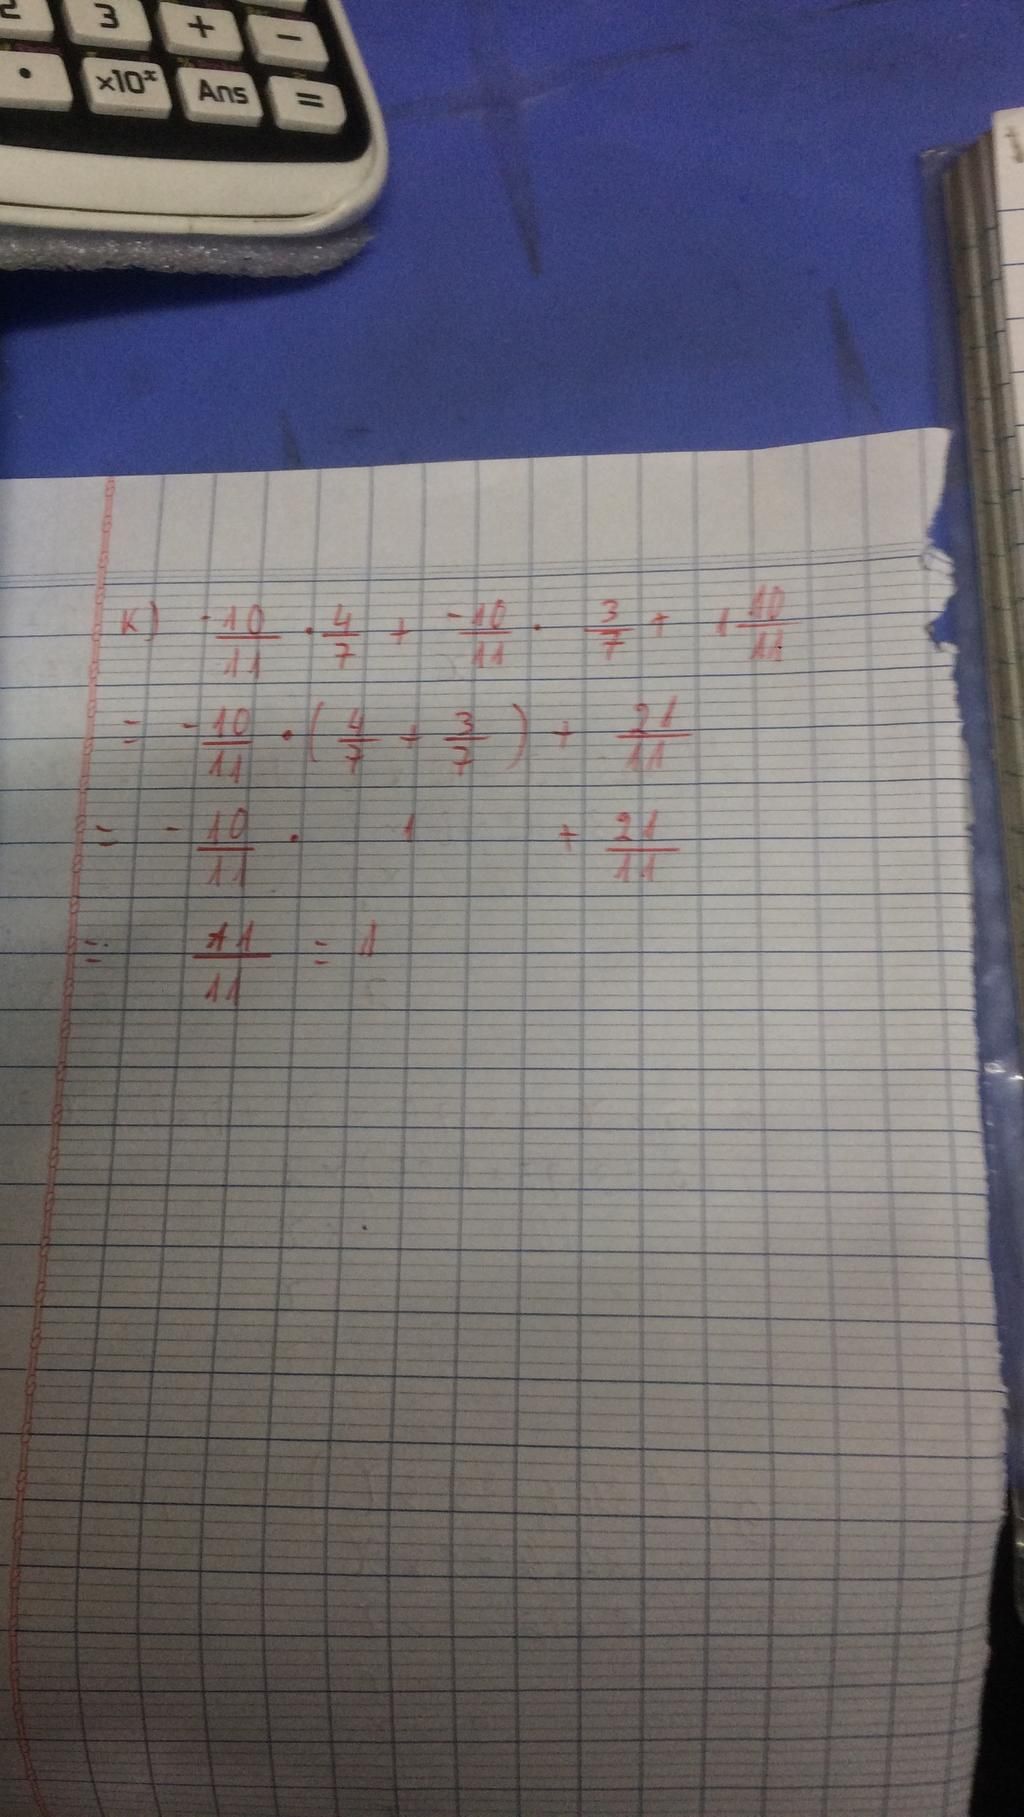 2 3 + -
. ×10ˣ Ans =
K) -10/11 . 4/7 + -10/11 . 3/7 + 1 10/11
= -10/11 . (4/7 + 3/7) + 21/11
= -10/11 . 1 + 21/11
= 11/11 = 1